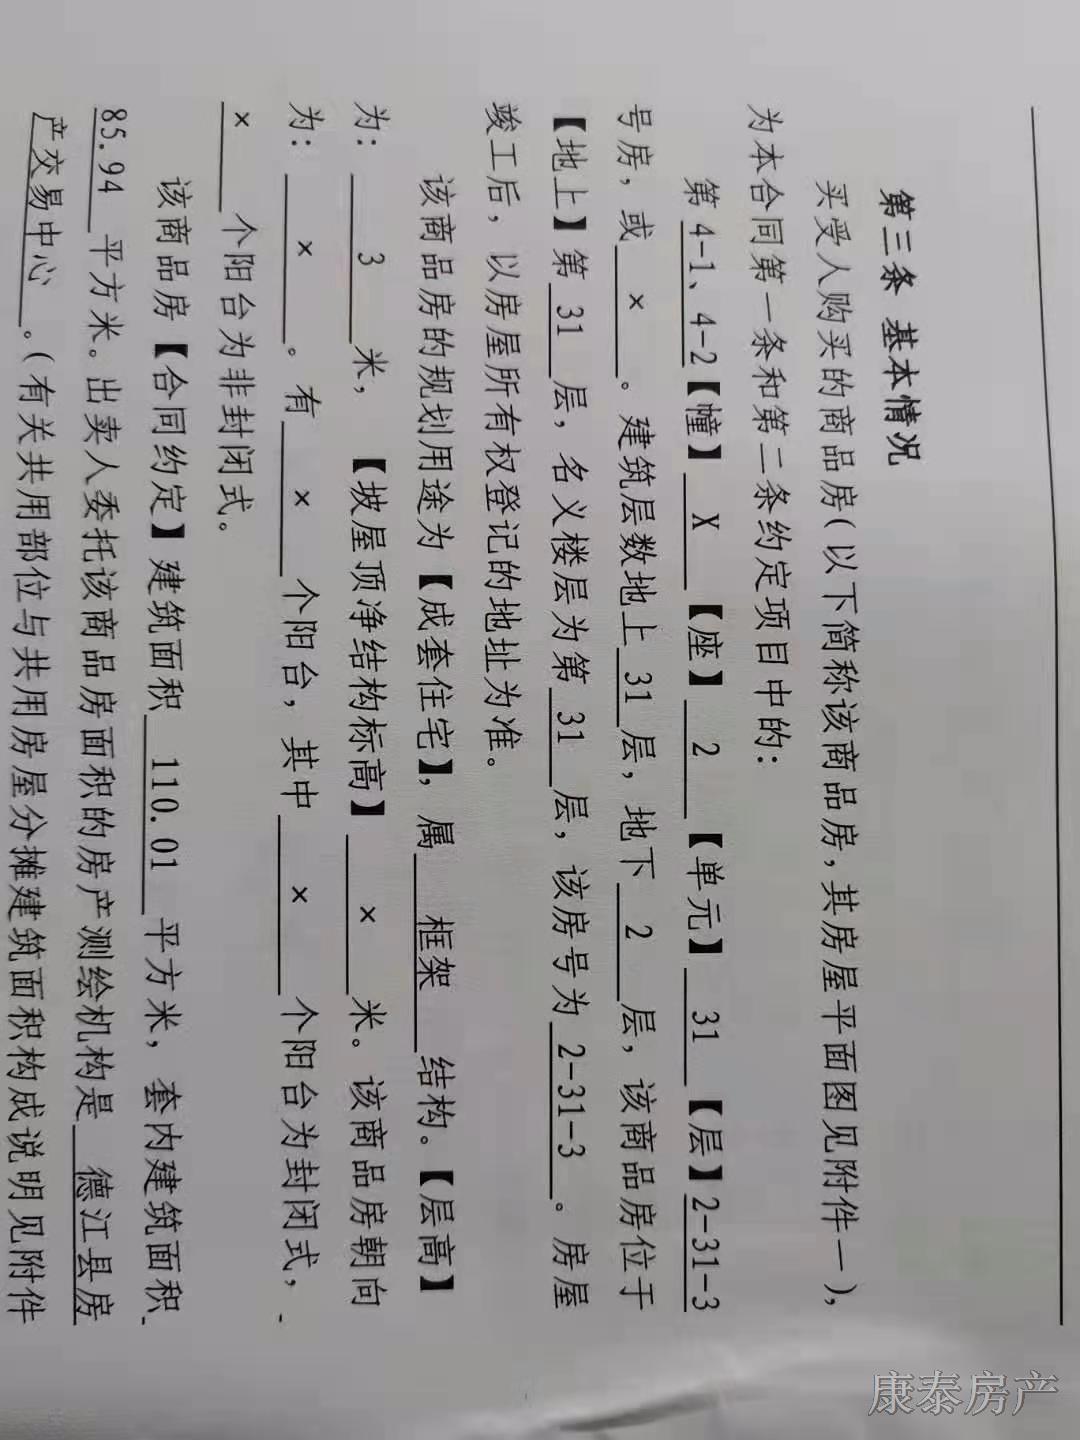 第三条 基本情况
买受人购买的商品房(以下简称该商品房,其房屋平面图见附件一),
为本合同第一条和第二条约定项目中的:
第 4-1、4-2【幢】 X 【座】 2 【单元】 31 【层】2-31-3
号房,或 × 。建筑层数地上 31 层,地下 2 层,该商品房位于
【地上】第 31 层,名义楼层为第 31 层,该房号为 2-31-3 。房屋
竣工后,以房屋所有权登记的地址为准。
该商品房的规划用途为【成套住宅】,属 框架 结构。【层高】
为: 3 米,【坡屋顶净结构标高】 × 米。该商品房朝向
为: × 。有 × 个阳台,其中 × 个阳台为封闭式,
× 个阳台为非封闭式。
该商品房【合同约定】建筑面积 110.01 平方米,套内建筑面积
85.94 平方米。出卖人委托该商品房面积的房产测绘机构是 德江县房
产交易中心 。(有关共用部位与共用房屋分摊建筑面积构成说明见附件
康泰房产